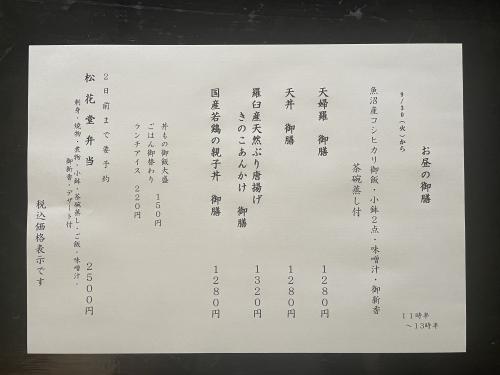 ９/３０（火）から
お昼の御膳
１１時半
～１３時半
魚沼産コシヒカリ御飯・小鉢２点・味噌汁・御新香
茶碗蒸し付
天婦羅　御膳　１２８０円
天丼　御膳　１２８０円
羅臼産天然ぶり唐揚げ
きのこあんかけ　御膳　１３２０円
国産若鶏の親子丼　御膳　１２８０円
丼もの御飯大盛
ごはん御替わり　１５０円
ランチアイス　２２０円
２日前まで要予約
松花堂弁当　２５００円
刺身・焼物・煮物・小鉢・茶碗蒸し・ご飯・味噌汁・
御新香・デザート付
税込価格表示です